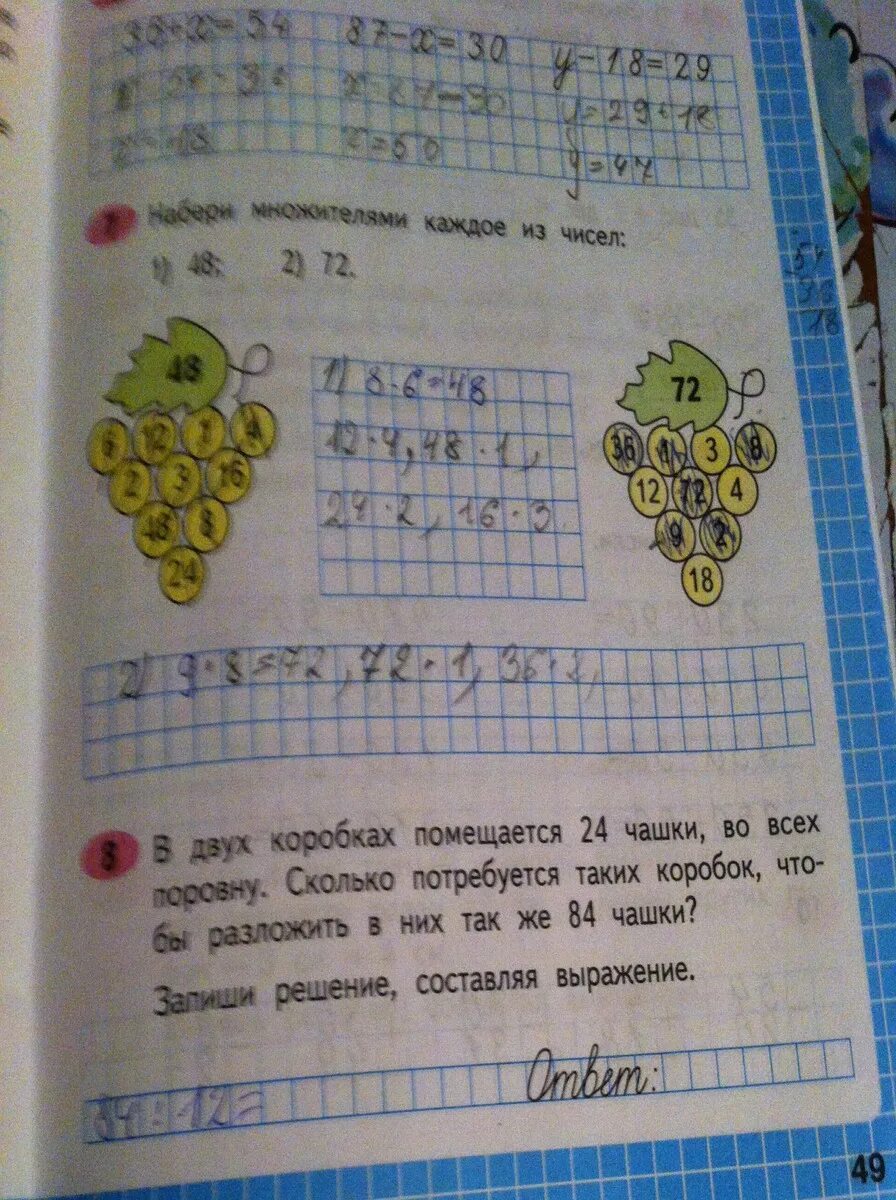 36+x=54 87-x=30 y-18=29
x=87-30 y=29+18
x=18 x=50 y=47
7 Набери множителями каждое из чисел:
1) 48; 2) 72.
48
6 12 1 4
2 3 16
48 8
24
1) 8·6=48
12·4, 48·1,
24·2, 16·3
72
36 1 3 8
12 72 4
9 2
18
54
36
18
2) 9·8=72, 72·1, 36·2,
8 В двух коробках помещается 24 чашки, во всех
поровну. Сколько потребуется таких коробок, что-
бы разложить в них так же 84 чашки?
Запиши решение, составляя выражение.
84:12= Ответ:
49